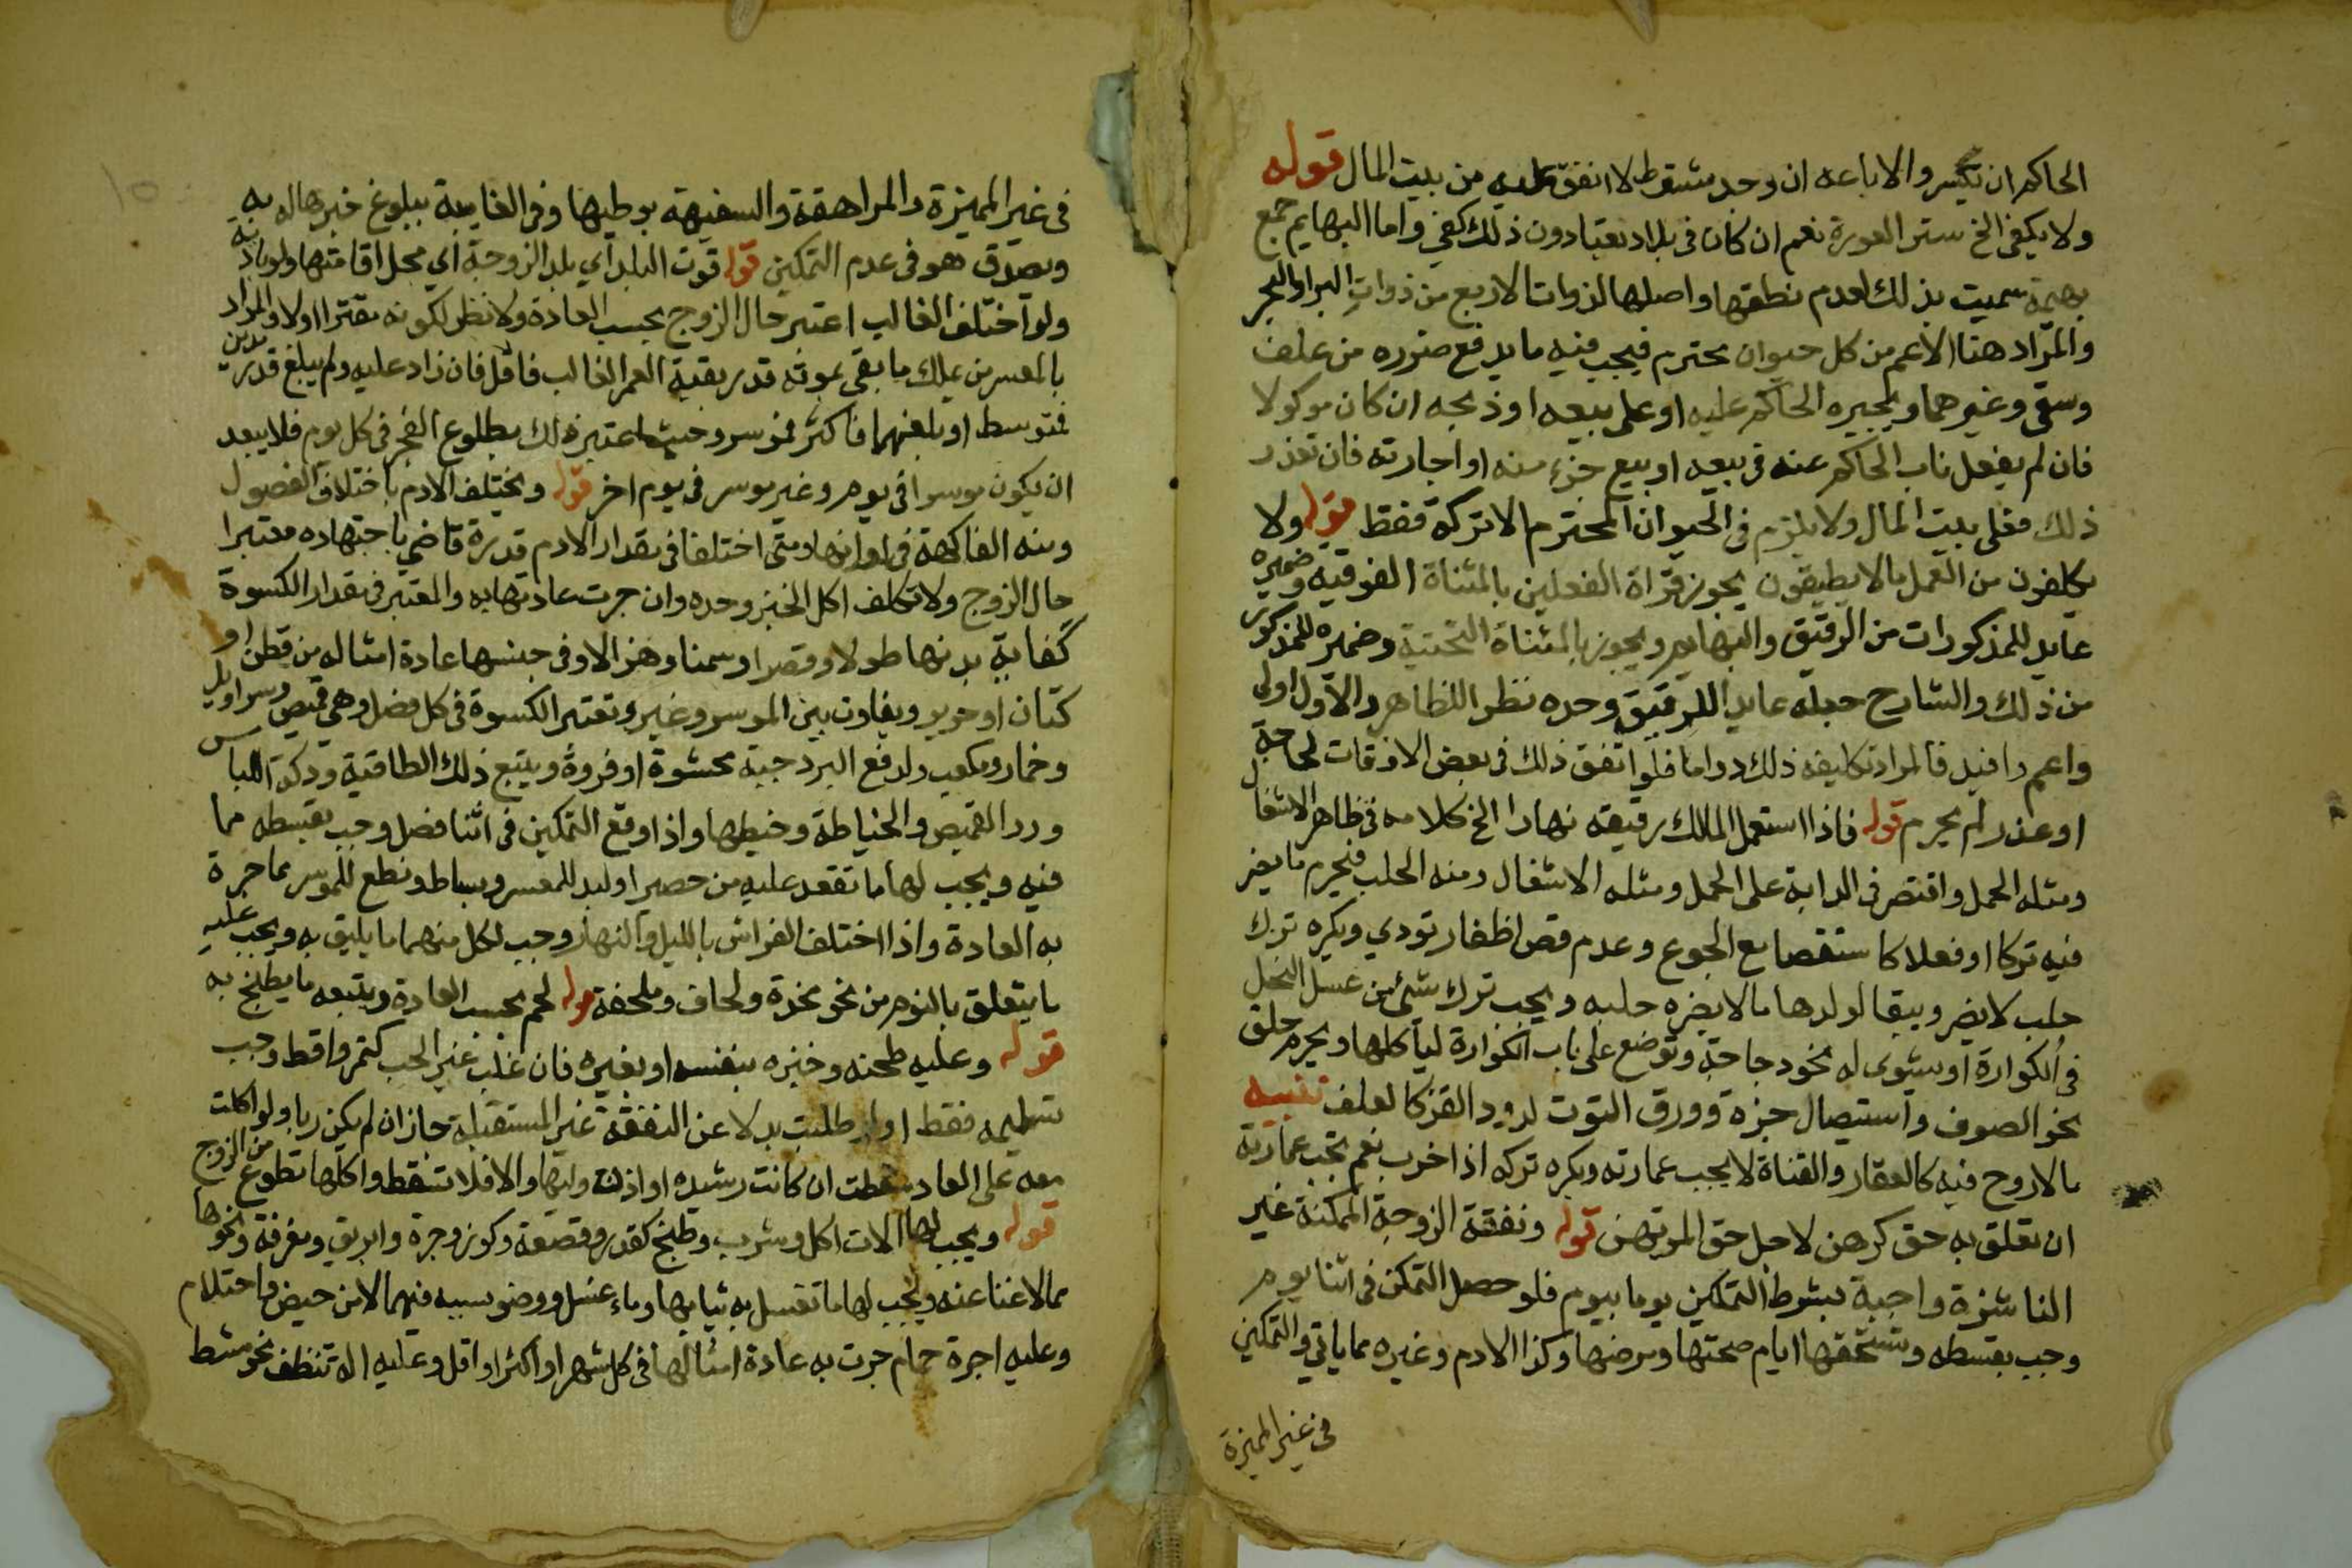 الحاكم ان تيسر والا باعه ان وجد مشتر والا انفق عليه من بيت المال قوله
ولا يكفي الخ ستر العورة نعم ان كان في بلاد يعتادون ذلك كفى واما البهايم جمع
بهيمة سميت بذلك لعدم نطقها واصلها لذوات الاربع من ذوات البر او البحر
والمراد هنا الاعم من كل حيوان محترم فيجب فيه ما يدفع ضرره من علف
وسقى وغيرهما ويجبره الحاكم عليه او على بيعه او ذبحه ان كان موكولا
فان لم يفعل ناب الحاكم عنه في بيعه او بيع جزء منه او اجارته فان تعذر
ذلك فعلى بيت المال ولا يلزم في الحيوان المحترم الا تركة فقط قوله ولا
يكلفون من العمل ما لا يطيقون يجوز قراة الفعلين بالمثناة الفوقيه وضميره
عايد للمذكورات من الرقيق والبهايم ويجوز بالمثناة التحتية وضميره للمذكور
من ذلك والشارح جعله عايدا للرقيق وحده نظرا للظاهر والاول اولى
واعم وافيد فالمراد تكليفه ذلك دواما فلو اتفق ذلك في بعض الاوقات لحاجة
او عذر لم يحرم قوله فاذا استعمل المالك رقيقه نهارا الخ كلامه في ظاهر الاشغال
ومثله الحمل واقتصر في الدابة على الحمل ومثله الاشغال ومنه الحلب فيحرم ما يضر
فيه تركا او فعلا كاستقصا مع الجوع وعدم قص اظفار تؤدي ويكره ترك
حلب لا يضر ويبقا لولدها ما لا يضره حلبه ويجب ترك شيئ من عسل النحل
في الكوارة او يشوى له نحو دجاجة وتوضع على باب الكوارة لياكلها ويحرم حلق
نحو الصوف واستيصال جزه وورق التوت لدود القز كالعلف تنبيه
ما لا روح فيه كالعقار والقناة لا يجب عمارته ويكره تركه اذا خرب نعم تجب عمارته
ان تعلق به حق كرهن لاجل حق المرتهن قوله ونفقة الزوجة الممكنة غير
الناشزة واجبة بشرط التمكين يوما بيوم فلو حصل التمكن في اثنا يوم
وجب بقسطه وتستحقها ايام صحتها ومرضها وكذا الادم وغيره مما ياتي والتمكين
في غير المميزة
في غير المميزة والمراهقة والسفيهة بوطيها وفي الغايبة ببلوغ خبرها له به
ويصدق هو في عدم التمكين قوله قوت البلد اي بلد الزوجة اي محل اقامتها ولو بادية
ولو اختلف الغالب اعتبر حال الزوج بحسب العادة ولا نظر لكونه مقترا اولا والمراد
بالمعسر من يملك ما بقى بموته قدر بقية العمر الغالب فاقل فان زاد عليه ولم يبلغ قدر مدين
فتوسط او بلغهما فاكثر فموسر وحيث اعتبر ذلك بطلوع الفجر في كل يوم فلا يبعد
ان يكون موسرا في يوم وغير موسر في يوم اخر قوله ويختلف الادم باختلاف الفصول
ومنه الفاكهة في اوانها ومتى اختلفا في مقدار الادم قدره قاضي باجتهاده معتبرا
حال الزوج ولا تكلف اكل الخبز وحده وان جرت عادتها به والمعتبر في مقدار الكسوة
كفاية بدنها طولا وقصرا وسمنا وهزالا وفي جنسها عادة امثاله من قطن او
كتان او حرير ويفاوت بين الموسر وغيره وتعتبر الكسوة في كل فصل وهي قميص وسراويل
وخمار ومكعب ولدفع البرد جبة محشوة او فروة ويتبع ذلك الطاقية ودكة اللباس
وزر القميص والخياطة وخيطها واذا وقع التمكين في اثنا فصل وجب بقسطه مما
فيه ويجب لها ما تقعد عليه من حصير او لبد للمعسر وبساط ونطع للموسر مما جرة
به العادة واذا اختلف الفراش بالليل والنهار وجب لكل منهما ما يليق به ويجب عليه
ما يتعلق بالنوم من نحو مخدة ولحاف وملحفة قوله لحم بحسب العادة ويتبعه ما يطبخ به
قوله وعليه طحنه وخبزه بنفسه او بغيره فان غلب غير الحب كتمر واقط وجب
تسليمه فقط او طلبت بدلا عن النفقة غير المستقبلة جاز ان لم يكن ربا ولو اكلت
معه على العادة سقطت ان كانت رشيده او اذن وليها والا فلا تسقط واكلها تطوع من الزوج
قوله ويجب لها الات اكل وشرب وطبخ كقدر وقصعة وكوز وجرة وابريق ومغرفة ونحوها
مما لا غنا عنه ويجب لها ما تغسل به ثيابها وماء غسل ووضو بسببه فيهما لا من حيض واحتلام
وعليه اجرة حمام جرت به عادة امثالها في كل شهر او اكثر او اقل وعليه الة تنظف نحو مشط